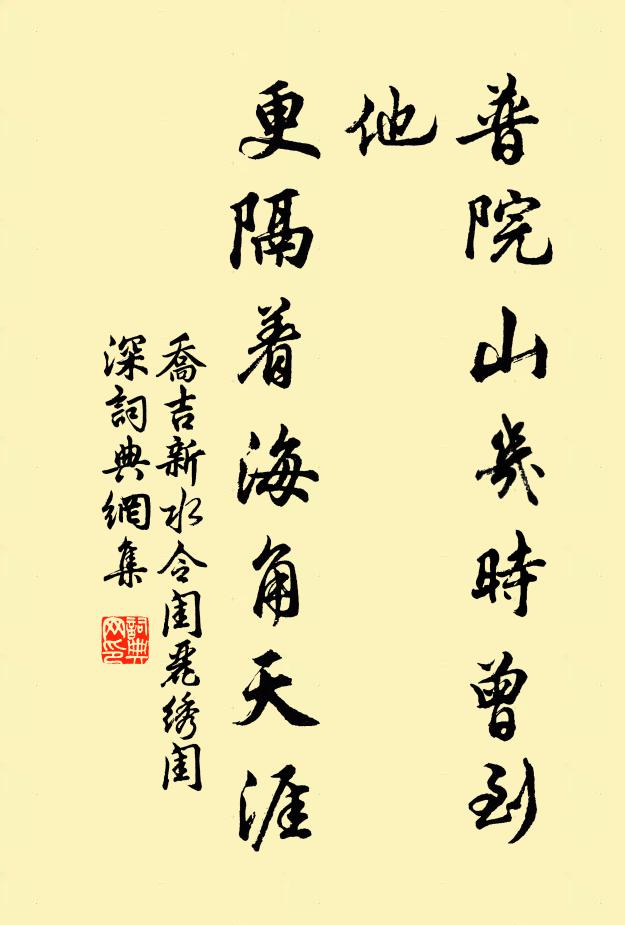 普院山幾時曾到
他
更隔着海角天涯
喬吉新水令閨麗绣閨
深詞典網集
詞典
网印